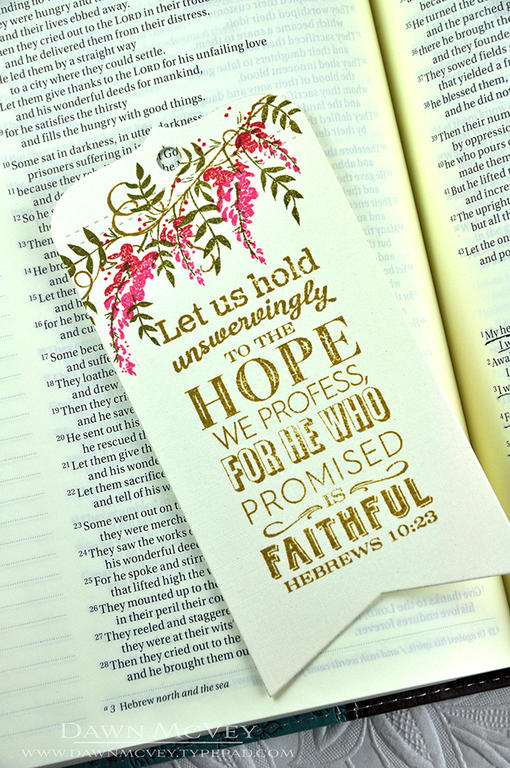 they were hungry and
and their lives ebbed away.
Then they cried out to the LORD in their trouble,
and he delivered them from their distress.
He led them by a straight way
to a city where they could settle.
Let them give thanks to the LORD for his unfailing love
and his wonderful deeds for mankind,
for he satisfies the thirsty
and fills the hungry with good things.
10 Some sat in darkness, in utter
prisoners suffering in
11 because they
12 So he
13 Then
14 He
15 Let them
16 for he br
17 Some beca
18 They loathe
and drew
19 Then they cried
and he save
20 He sent out his
he rescued th
21 Let them give th
and his wonde
22 Let them sacrifice
and tell of his w
23 Some went out on t
they were mercha
24 They saw the works o
his wonderful dee
25 For he spoke and stirr
that lifted high the
26 They mounted up to the
in their peril their cou
27 They reeled and staggere
they were at their wits'
28 Then they cried out to the
and he brought them ou
a 3 Hebrew north and the sea
He turned the
and the parched
36 there he brought th
and they founde
37 They sowed fields
that yielded a fr
38 he blessed them,
and he did no
39 Then their num
by oppressio
40 he who pours
made them
41 But he lifted
and incre
42 The uprigh
but all
43 Let the on
and
Let us hold
unswervingly
TO THE
HOPE
WE PROFESS,
FOR HE WHO
PROMISED
IS
FAITHFUL
HEBREWS 10:23
DAWN MCVEY
WWW.DAWNMCVEY.TYPEPAD.COM